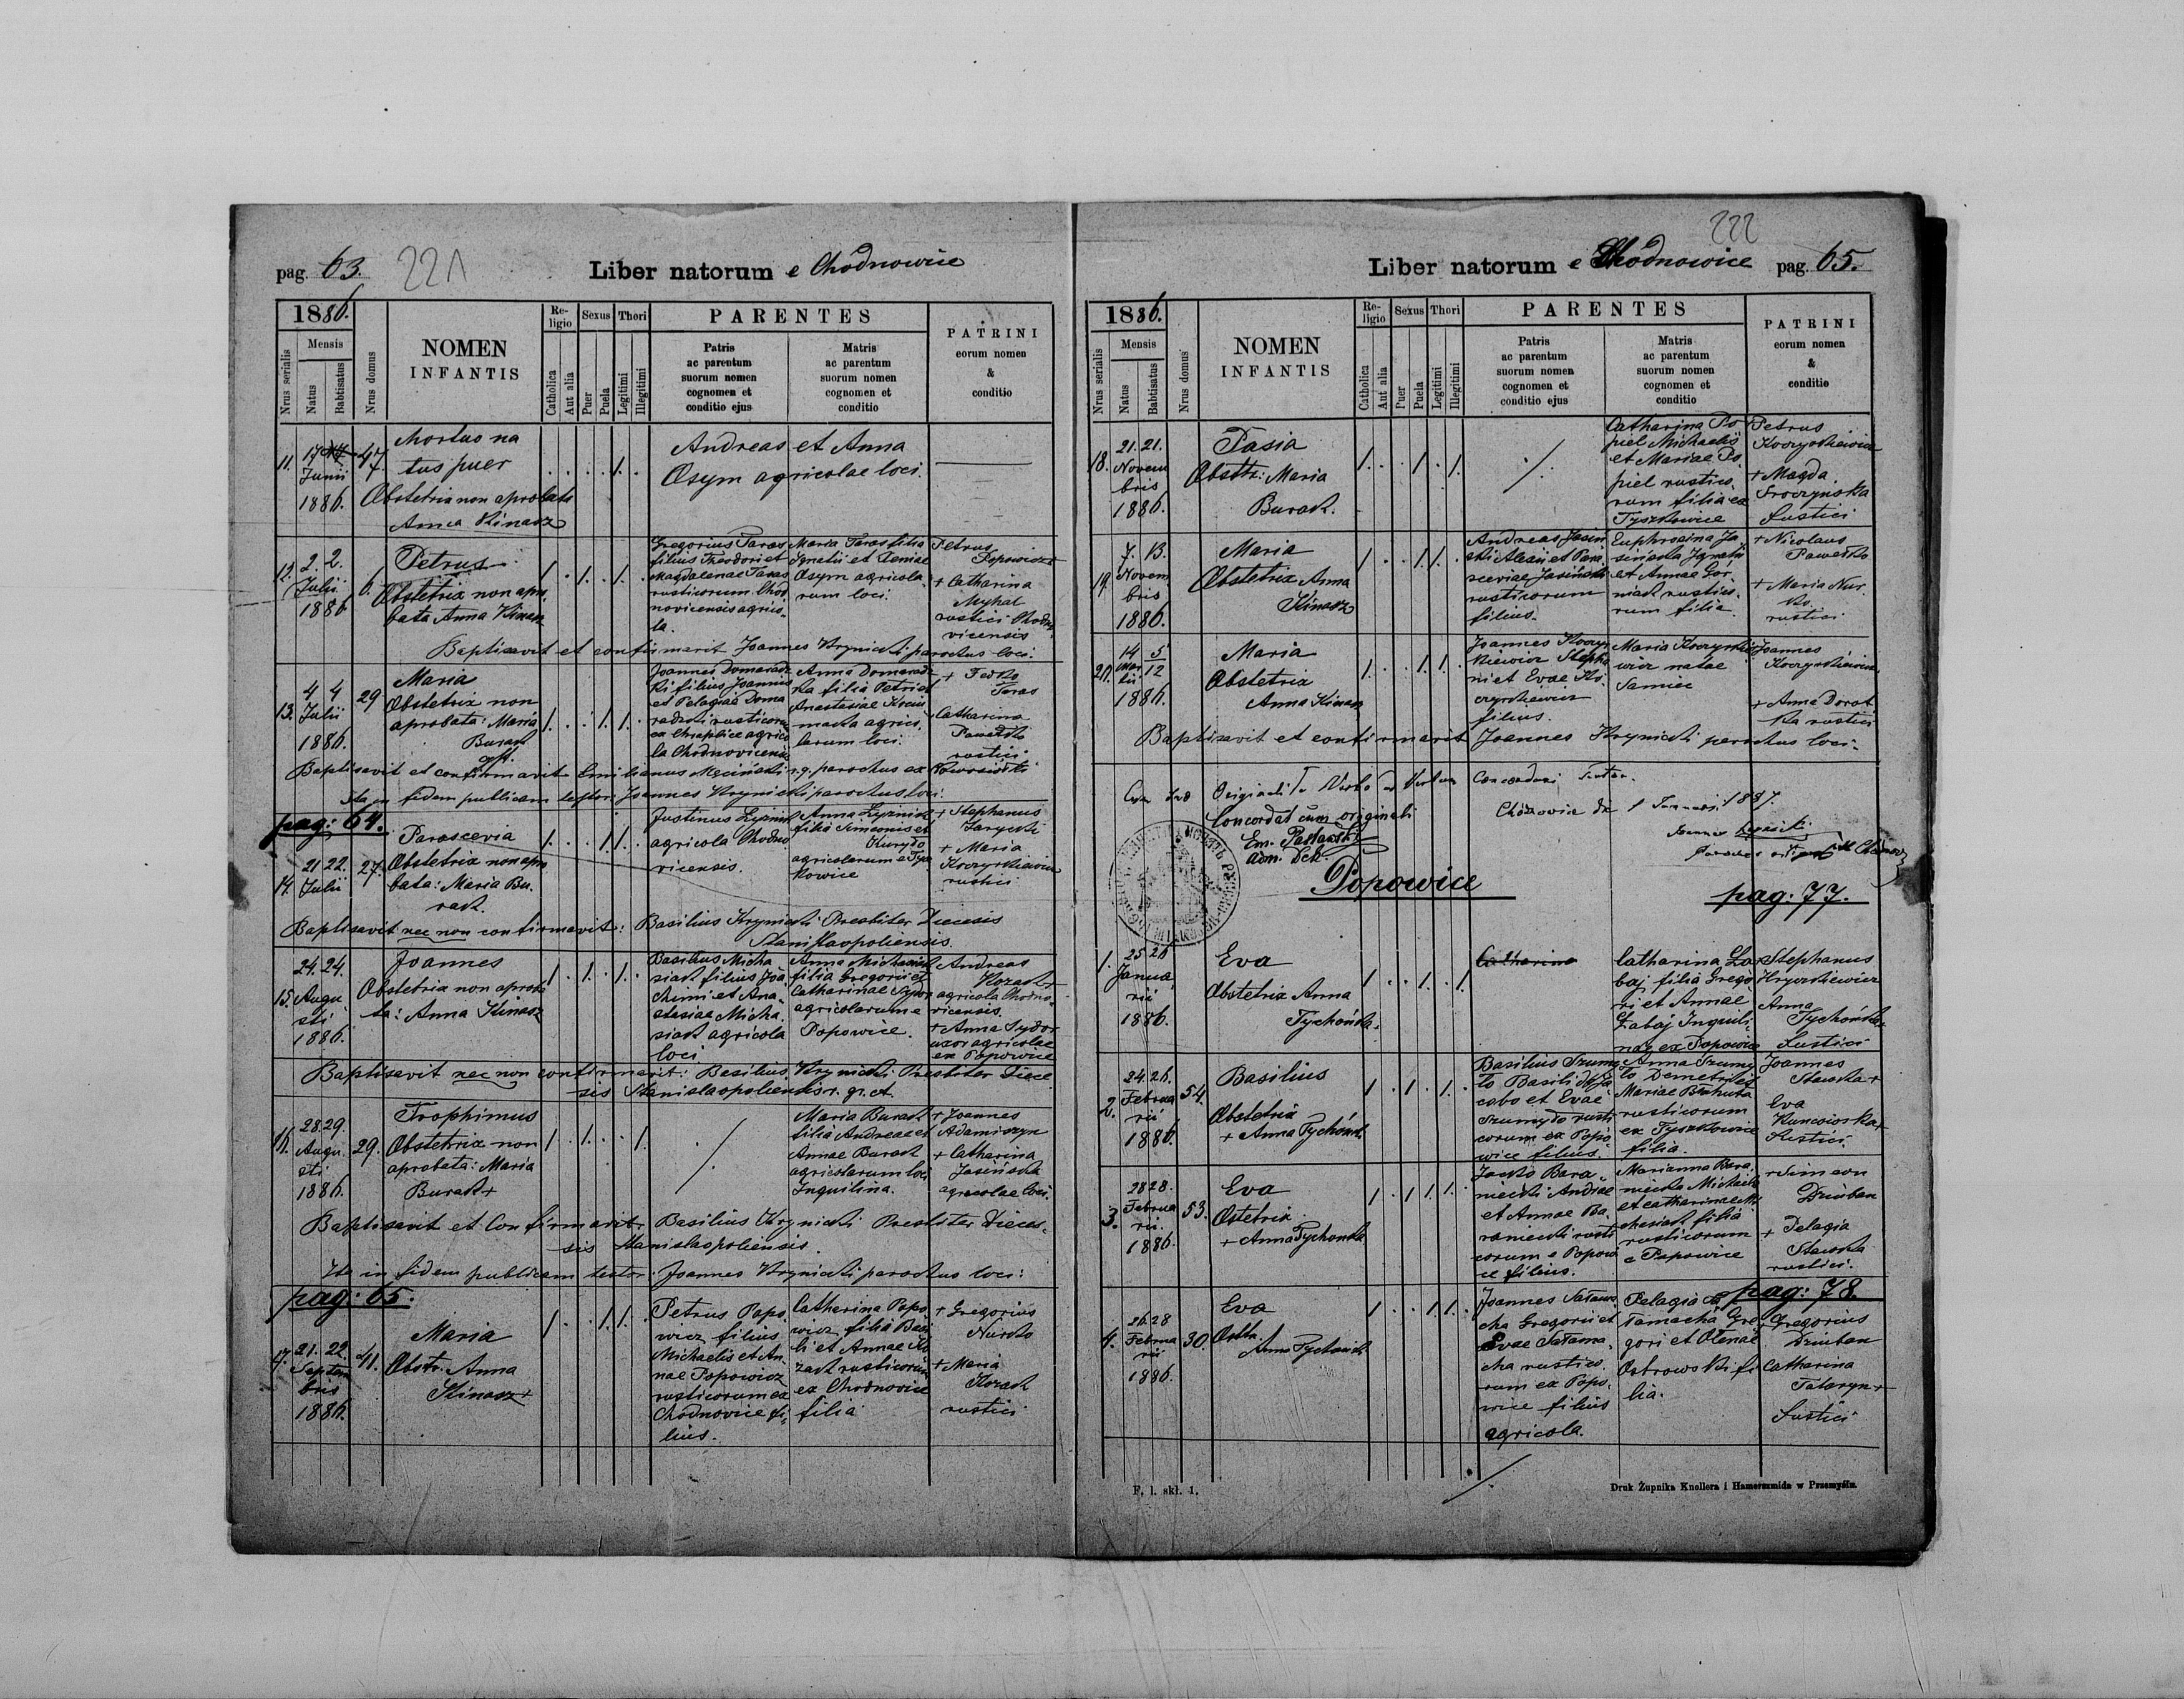 pag. 63. 221
Liber natorum e Chodnowice
1886.
Nrus serialis
Mensis
Natus
Babtisatus
Nrus domus
NOMEN
INFANTIS
Religio
Catholica
Aut alia
Sexus
Puer
Puela
Thori
Legitimi
Illegitimi
PARENTES
Patris
ac parentum
suorum nomen
cognomen et
conditio ejus
Matris
ac parentum
suorum nomen
cognomen et
conditio
PATRINI
eorum nomen
&
conditio
11. 17
Junii
1886.
47.
Mortuo na
tus puer
Obstetrix non aprobata
Anna Kinasz
Andreas et Anna
Osym agricolae loci.
12. 2. 2.
Julii
1886
6.
Petrus
Obstetrix non apro
bata Anna Kinasz
Gregorius Taras
filius Theodori et
Magdalenae Taras
rusticorum Chod
novicensis agrico
la.
Maria Taras filia
Ignatii et Xeniae
Osym agricola
rum loci.
Petrus
Popowicz
+ Catharina
Myhal
rustici Chodno
vicensis
Baptisavit et confirmavit Joannes Krynicki parochus loci.
13. 4 4
Julii
1886.
29
Maria
Obstetrix non
aprobata: Maria
Burach
Joannes Domaradz
ki filius Joannis
et Pelagiae Doma
radzki rusticorum
ex agrico
la Chodnovicensis
Anna Domaradz
ka filia Petri et
Anastasiae
agrico
larum loci.
+ Fedko
Taras
Catharina
Pawełko
rustici
Baptisavit et confirmavit Emilianus r.g. parochus ex
Ita in fidem publicam testor: Joannes Krynicki parochus loci.
pag: 64.
14. 21 22.
Julii
27.
Parascevia
Obstetrix non apro
bata: Maria Bu
rach.
Justinus
agricola Chodno
vicensis.
Anna
filia Simeonis et
agricolarum e Tysz
kowice
+ Stephanus
Jarycki
+ Maria
Koczyrkiewicz
rustici
Baptisavit nec non confirmavit: Basilius Krynicki Presbiter Diecesis
Stanislaopoliensis.
15. 24. 24.
Augu
sti
1886.
Joannes
Obstetrix non aproba
ta: Anna Kinasz
Basilius Micha
siach filius Joa
chimi et Ana
stasiae Micha
siach agricola
loci
Anna Michasiach
filia Gregorii et
Catharinae Sydor
agricolarum e
Popowice.
Andreas
Kozach +
agricola Chodno
vicensis.
+ Anna Sydor
uxor agricolae
ex Popowice
Baptisavit nec non confirmavit: Basilius Krynicki Presbiter Diece
sis Stanislaopoliensis r. gr. ct.
16. 28. 29.
Augu
sti
1886.
29.
Trophimus
Obstetrix non
aprobata: Maria
Burach +
Maria Burach
filia Andreae et
Annae Burach
agricolarum loci
Inquilina.
+ Joannes
Adamiszyn
+ Catharina
Jasińska
agricolae loci.
Baptisavit et Confirmavit: Basilius Krynicki Presbiter Dieces
sis Stanislaopoliensis.
Ita in fidem publicam testor: Joannes Krynicki parochus loci:
pag: 65.
17. 21. 22.
Septem
bris
1886.
41.
Maria
Obstr. Anna
Kinasz +
Petrus Popo
wicz filius
Michaelis et An
nae Popowicz
rusticorum ex
Chodnovice fi
lius.
Catharina Popo
wicz filia Basi
li et Annae Ko
zach rusticorum
ex Chodnovice
filia
+ Gregorius
Nurko
+ Maria
Kozach
rustici
222
Liber natorum e Chodnowice pag. 65.
1886.
Nrus serialis
Mensis
Natus
Babtisatus
Nrus domus
NOMEN
INFANTIS
Religio
Catholica
Aut alia
Sexus
Puer
Puela
Thori
Legitimi
Illegitimi
PARENTES
Patris
ac parentum
suorum nomen
cognomen et
conditio ejus
Matris
ac parentum
suorum nomen
cognomen et
conditio
PATRINI
eorum nomen
&
conditio
18. 21. 21.
Novem
bris
1886.
Pasia
Obsttr: Maria
Burach.
Catharina Po
piel Michaelis
et Mariae Po
piel rustico
rum filia ex
Tyszkowice
Petrus
Koczyrkiewicz
+ Magda
Sroczynska
Rustici
19. 7. 13.
Novem
bris
1886.
Maria
Obstetrix Anna
Kinasz
Andreas Jasiń
ski Alexii et Para
sceviae Jasiński
rusticorum
filius.
Euphrosina Ja
sińska Ignatii
et Annae Gór
niach rustico
rum filia
+ Nicolaus
Pawełko
+ Maria Nur
ko
rustici
20. 14 5
12
1886.
Maria
Obstetrix
Anna Kinasz
Joannes Koczyr
kiewicz Stepha
ni et Evae Ko
czyrkiewicz
filius.
Maria Koczyrkie
wicz natae
Samiec
Joannes
Koczyrkiewicz
+ Anna Dorot
ka rustici
Baptisavit et confirmavit Joannes Krynicki parochus loci.
Originali de Verbo ad Verbum Concordari testor.
Concordat cum originali
Em.
Adm. Dek.
1887.
Popowice
pag: 77.
1. 25 26
Janua
rii
1886.
Eva
Obstetrix Anna
Tychońska.
Catharina
Catharina Ża
baj filia Grego
ri et Annae
Żabaj Inquili
nae ex Popowice
Stephanus
Hryszkiewicz
Anna
Tychońska
Rustici
2. 24. 26.
Februa
rii
1886.
54.
Basilius
Obstetrix
+ Anna Tychońsk.
Basilius Szumy
ło Basilii Ja
cobo et Evae
Szumyło rusti
corum ex Popo
wice filius.
Anna Szumy
ło Demetrii et
Mariae
rusticorum
ex Tyszkowice
filia.
Joannes
Stawska +
Eva
Rustici.
3. 28 28.
Februa
rii.
1886.
53.
Eva
Ostetrix
+ Anna Tychonska
Jacko Bara
niecki Andreae
et Annae Ba
raniecki rusti
corum e Popowi
ce filius.
Marianna Bara
niecka Michaelis
et Catharinae Mi
chasiach filia
rusticorum
e Popowice
+ Simeon
Dziuban
+ Pelagia
Stawska
rustici.
pag: 78.
4. 26 28
Februa
rii
1886.
30.
Eva
Obsttr.
Anna Tychońsk
Joannes Satama
cha Gregorii et
Evae Satama
cha rustico
rum ex Popo
wice filius
agricola.
Pelagia Sa
tamacha Gre
gori et Olenae
Ostrowski fi
lia.
Gregorius
Dziuban
Catharina
Tataryn +
Rustici
F. l. skł. 1.
Druk Żupnika Knollera i Hamerszmida w Przemyślu.